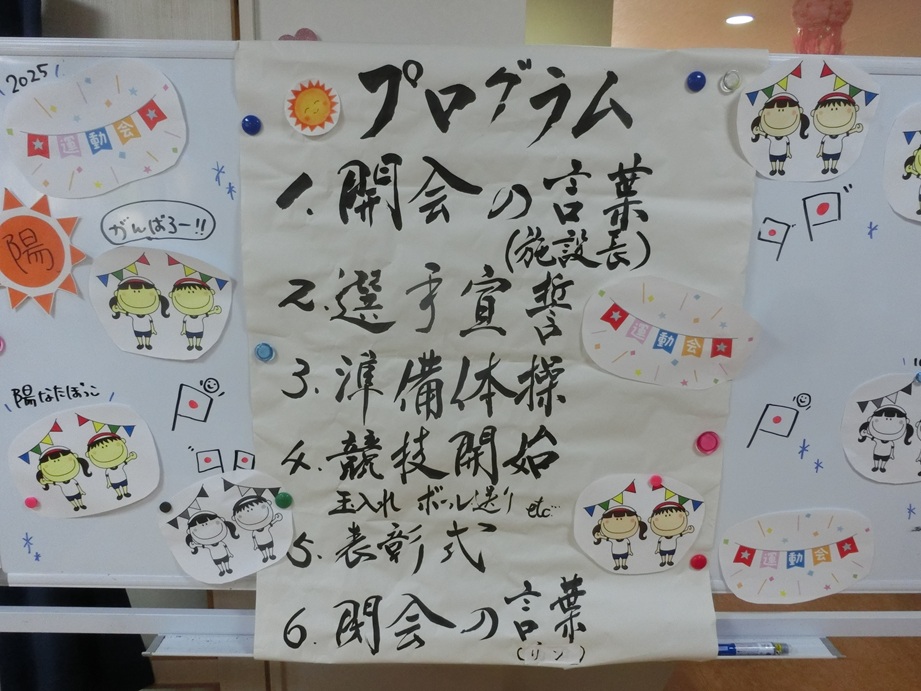 2025
運動会
陽
がんばろー!!
陽なたぼっこ
プログラム
1. 開会の言葉
(施設長)
2. 選手宣誓
3. 準備体操
4. 競技開始
玉入れ ボール送り etc…
5. 表彰式
6. 閉会の言葉
運動会
運動会